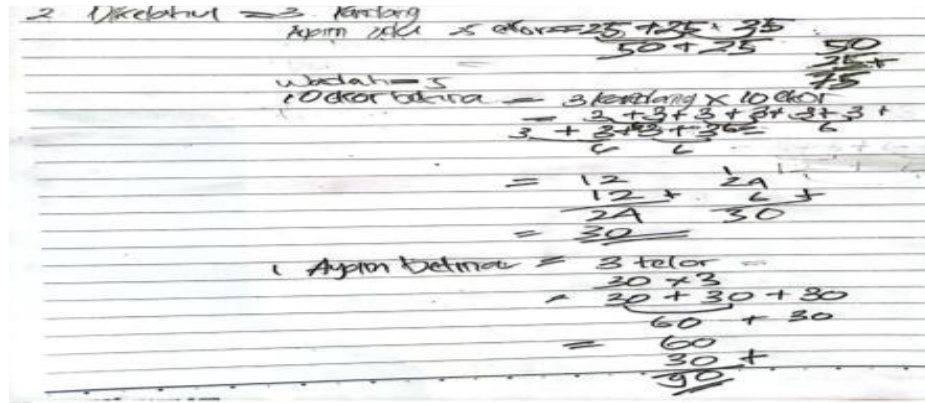 2 Diketahui = 3 kandang
Ayam 25 ekor = 25 + 25 + 25
50 + 25
50
25 +
75
Wadah = 5
10 ekor betina = 3 kandang × 10 ekor
= 3 + 3 + 3 + 3 + 3 + 3 +
3 + 3 + 3 + 3 = 6
6 6
= 12 24
12 + 6 +
24 30
= 30
1 Ayam betina = 3 telor
30 × 3
= 30 + 30 + 30
60 + 30
= 60
30 +
90